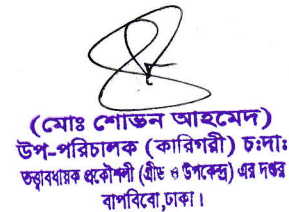 (মোঃ শোভন আহমেদ)
উপ-পরিচালক (কারিগরী) চ:দা:
তত্ত্বাবধায়ক প্রকৌশলী (গ্রীড ও উপকেন্দ্র) এর দপ্তর
বাপবিবো,ঢাকা।